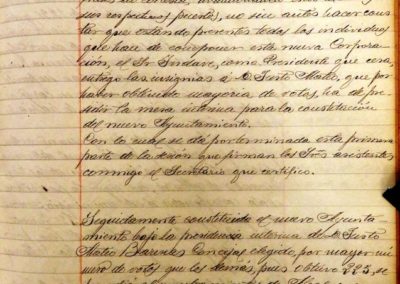 sus respectivos puestos, no sin antes hacer cons-
tar que estando presentes todos los individuos
que hace de componer esta nueva Corpora-
ción, el Sr. Indave, como Presidente que cesa,
entrega las insignias a D. Justo Mateo, que por
haber obtenido mayoria de votos, ha de pre-
sidir la mesa interina para la constitución
del nuevo Ayuntamiento.
Con lo cual se dá por terminada esta primera
parte de la sesion que firman los Sres asistentes
conmigo el Secretario que certifico.
Seguidamente constituido el nuevo Ayunta-
miento bajo la presidencia interina de D. Justo
Mateo Concejal elegido por mayor nú-
mero de votos que los demás, pues obtuvo 225, se